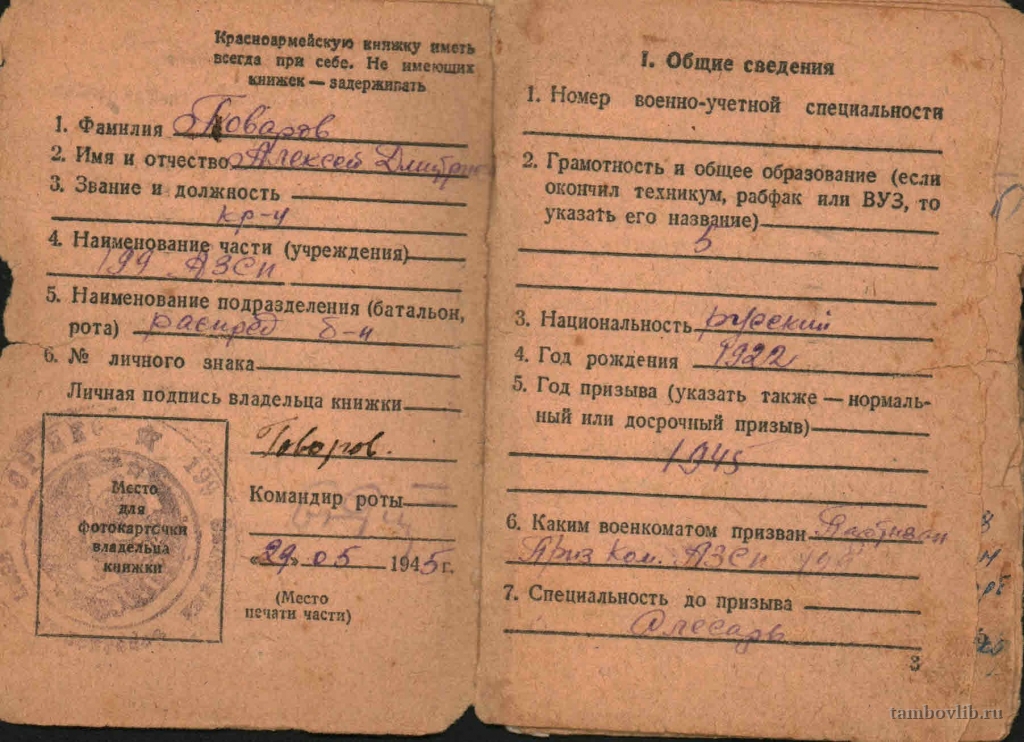 Красноармейскую книжку иметь
всегда при себе. Не имеющих
книжек — задерживать
1. Фамилия Говаров
2. Имя и отчество Алексей Дмитри
3. Звание и должность
кр-ц
4. Наименование части (учреждения)
199 АЗСП
5. Наименование подразделения (батальон,
рота) распред б-н
6. № личного знака
Личная подпись владельца книжки
Говаров.
Место
для
фотокарточки
владельца
книжки
Командир роты
„29„ 05 1945 г.
(Место
печати части)
I. Общие сведения
1. Номер военно-учетной специальности
2. Грамотность и общее образование (если
окончил техникум, рабфак или ВУЗ, то
указать его название)
5
3. Национальность русский
4. Год рождения 1922
5. Год призыва (указать также — нормаль-
ный или досрочный призыв)
1945
6. Каким военкоматом призван
Приз Ком. АЗСП
7. Специальность до призыва
Слесарь
3
tambovlib.ru